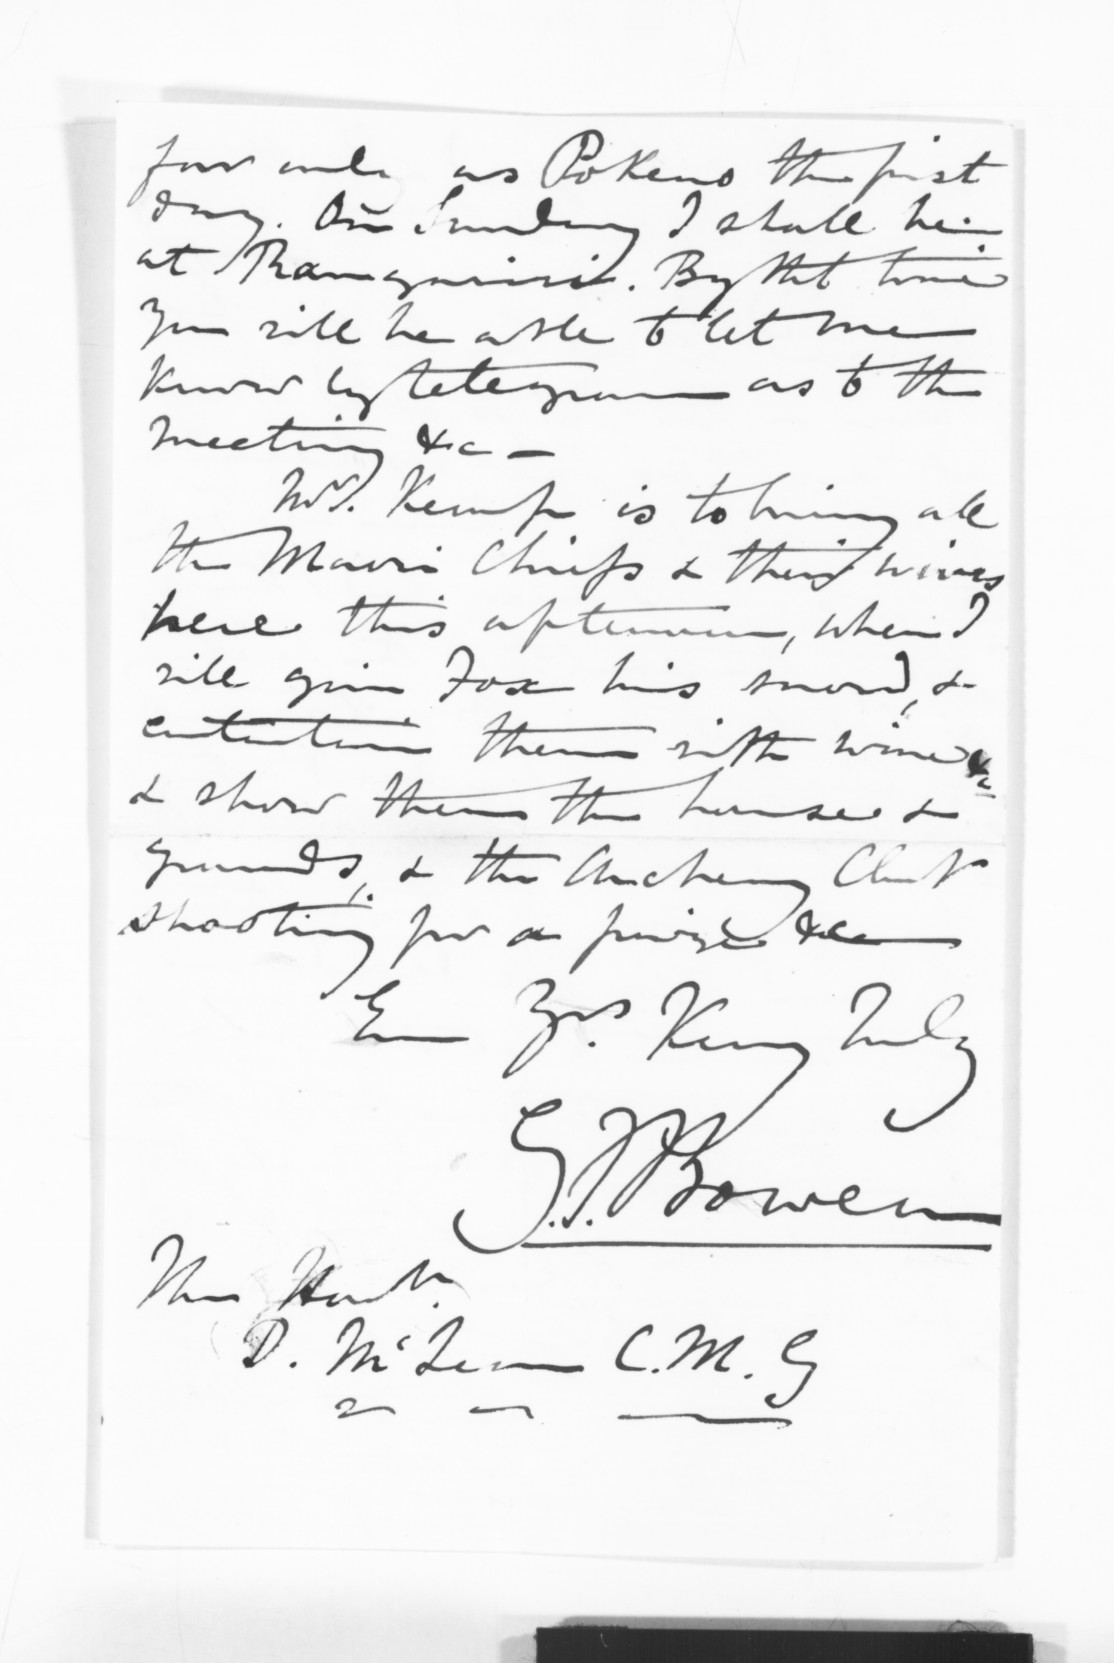 far only as Pokeno the first
day. On Sunday I shall be
at Rangiriri. By tht time
you will be able to let me
know by telegram as to the
meeting &c —
Mr. Kemp is to bring all
the Maori Chiefs & their wives
here this afternoon, when I
will give Fox his sword, &
entertain them with wine &c
& show them the house &
grounds, & the Archery Club
shooting for a prize &c
Ever Yrs. Very Truly
G. F. Bowen
The Honble.
D. McLean C.M.G